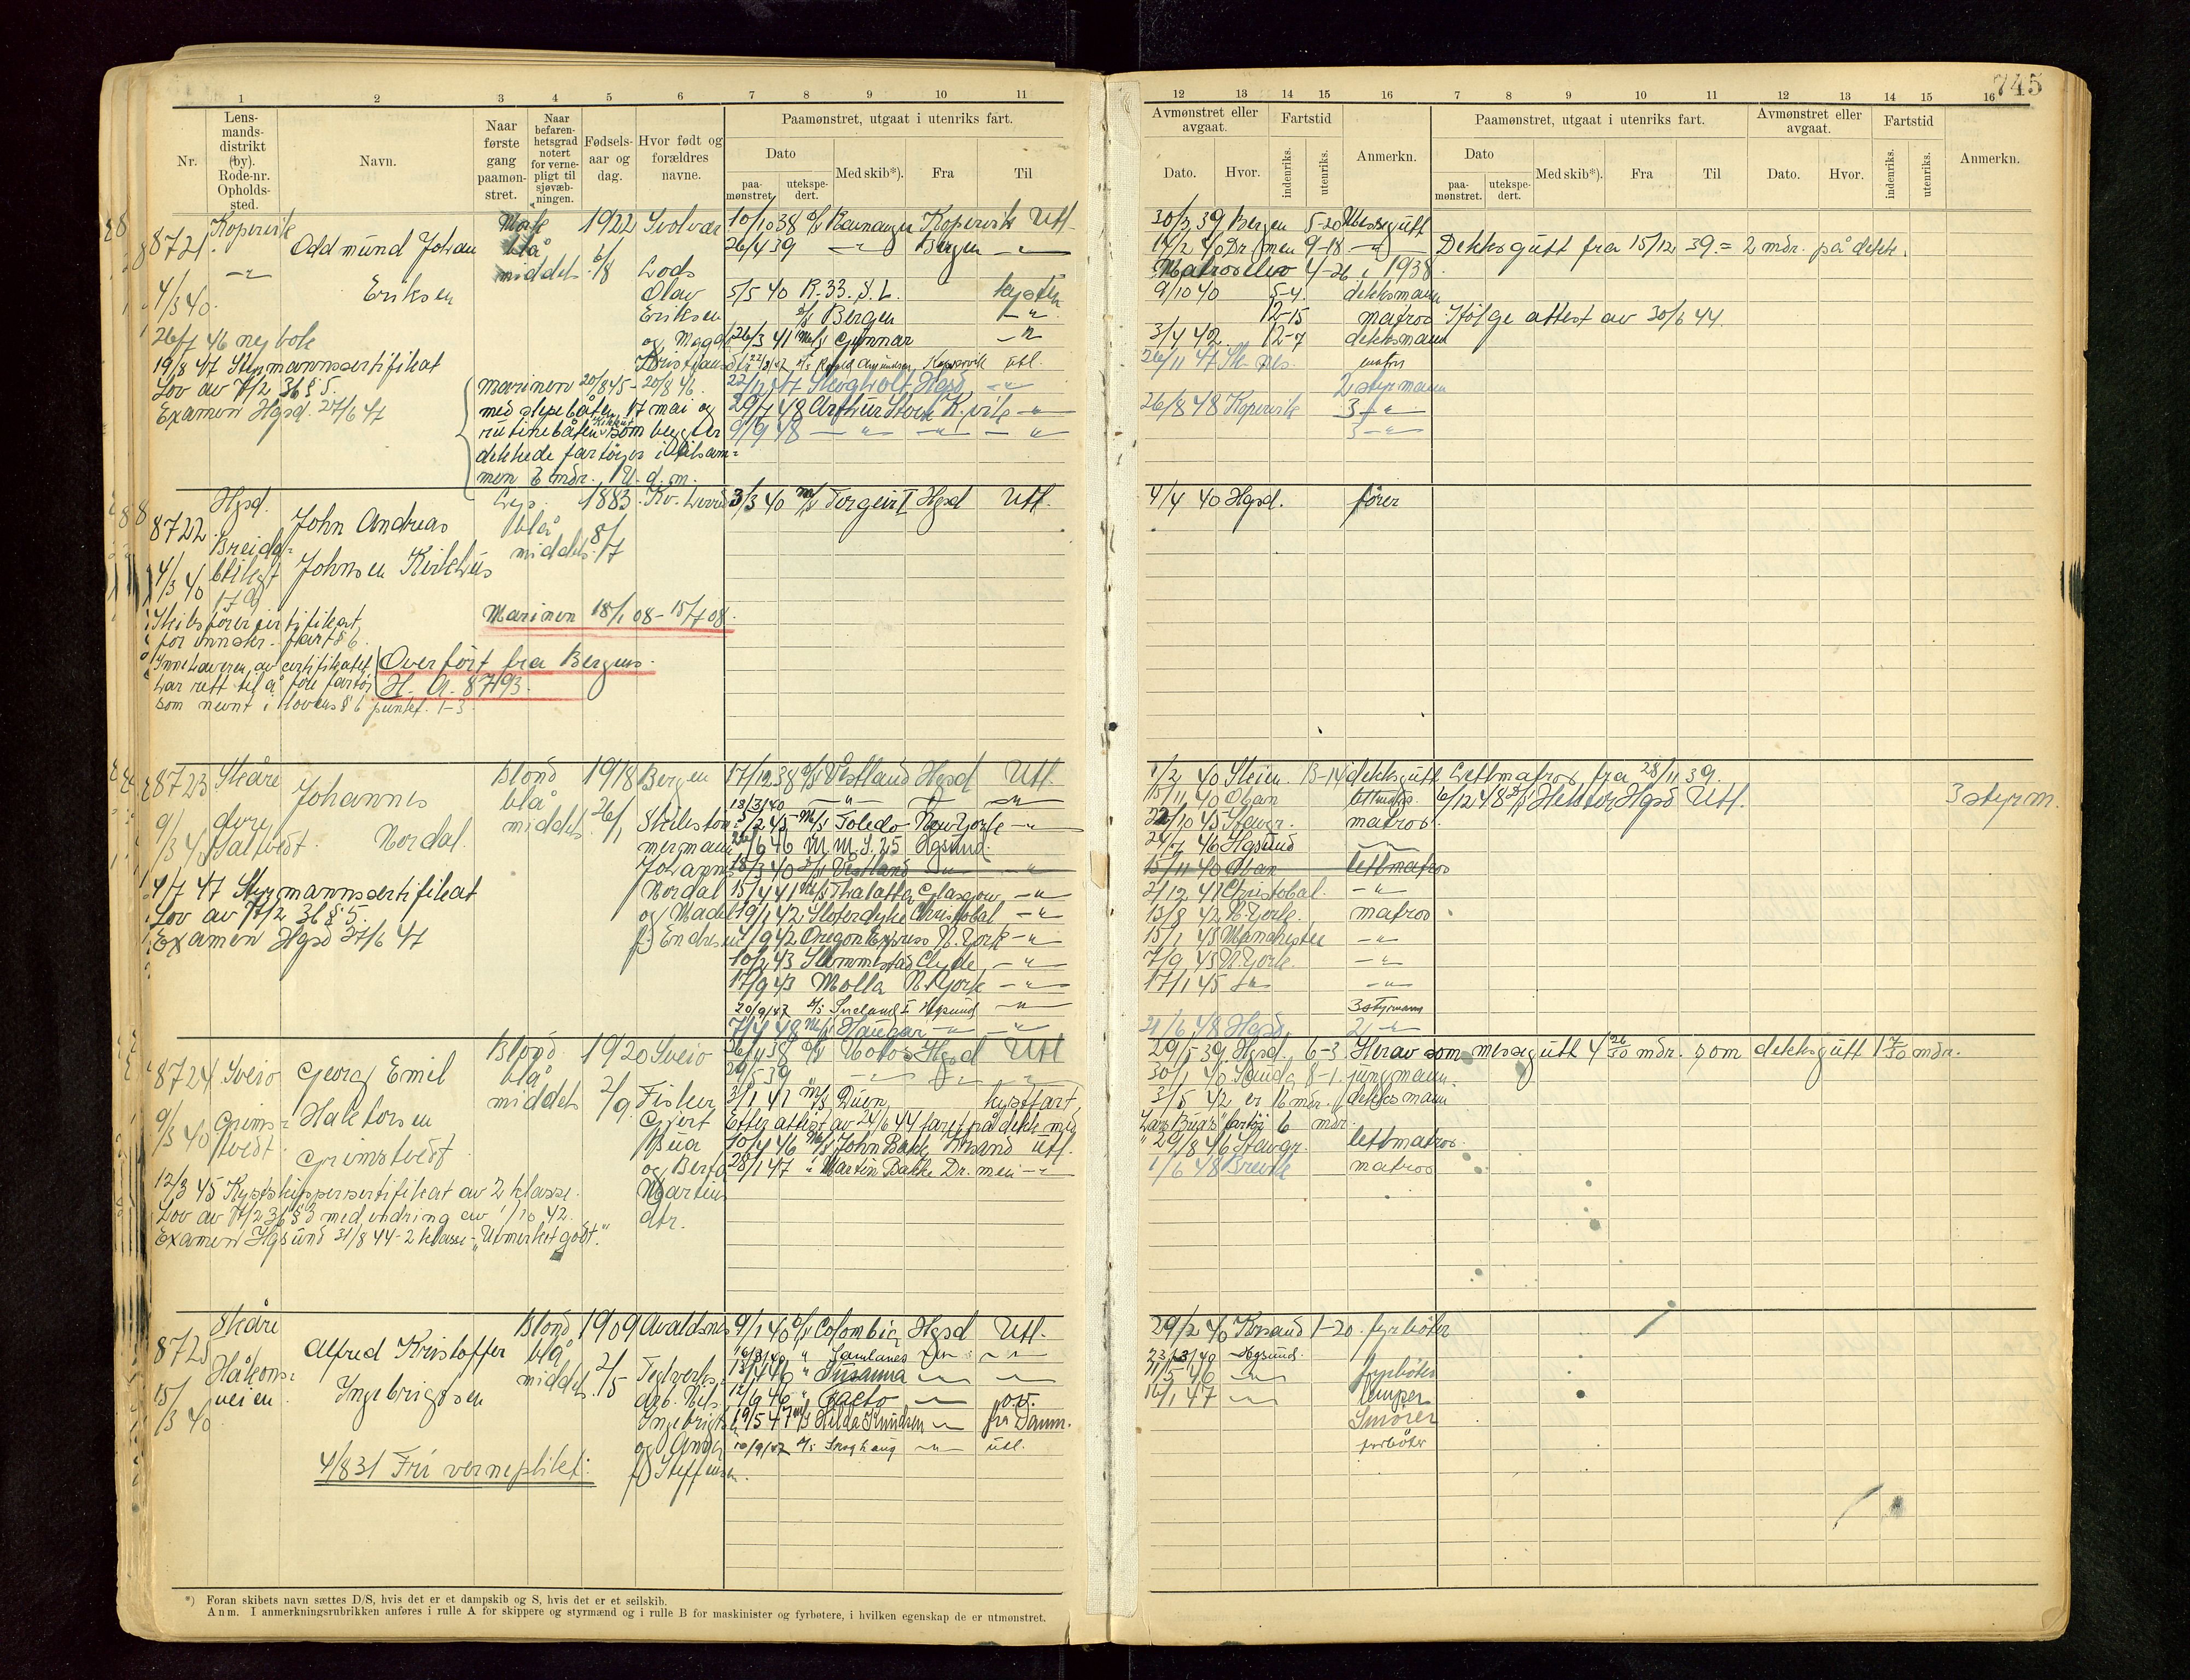 745
1 2 3 4 5 6 7 8 9 10 11
12 13 14 15 16 7 8 9 10 11 12 13 14 15 16
Nr.
Lens-
mands-
distrikt
(by).
Rode-nr.
Opholds-
sted.
Navn.
Naar
første
gang
paamøn-
stret.
Naar
befaren-
hetsgrad
notert
for verne-
pligt til
sjøvæb-
ningen.
Fødsels-
aar og
dag.
Hvor født og
forældres
navne.
Paamønstret, utgaat i utenriks fart.
Dato
paa-
mønstret.
utekspe-
dert.
Med skib*).
Fra
Til
Avmønstret eller
avgaat.
Dato.
Hvor.
Fartstid
indenriks.
utenriks.
Anmerkn.
Paamønstret, utgaat i utenriks fart.
Dato
paa-
mønstret.
utekspe-
dert.
Med skib*).
Fra
Til
Avmønstret eller
avgaat.
Dato.
Hvor.
Fartstid
indenriks.
utenriks.
Anmerkn.
8721 Kopervik Odd mund Johan
Eriksen
4/3 40.
26/7 46 ny bok
19/8 47 Styrmannssertifikat
Lov av 7/2 36 § 5.
Examen Hgsd. 27/6 47
Mørk
blå
middels
1922
6/8
Svolvær
Lods
Olav
Eriksen
og Magda
marinen 20/8 45 - 20/8 46.
med slepebåten 17 mai og
rutinebåten som begge er
dekkede fartøyer i tilsam-
men 6 mdr.
10/10 38 Ravnanger Kopervik Utl.
26/4 39 -"- Bergen -"-
5/5 40 R. 33. S. L. kysten
Bergen -"-
26/3 41 M/S Gunnar -"-
Roald Amundsen Kopervik utl.
22/12 47 Skogholt Hgsd -"-
29/7 48 Arthur Stove K.vik -"-
9/9 48 -"- -"- -"-
30/3 39 Bergen 5-20
14/2 40 Dr.men 9-18 -"- Dekksgutt fra 15/12 39 = 2 mdr. på dekk.
Matroselev 4-26 i 1938.
9/10 40 5-4. dekksmann
12-15 matros Ifølge attest av 30/6 44.
3/4 42. 12-7 dekksmann
26/11 47 matr
2 styrmann
26/8 48 Kopervik 3 -"-
3 -"-
8722 Hgsd. John Andreas
Johnsen Kirkhus
Breida-
blikgt
179
4/3 40
blå
middels
1883
8/7
3/3 40 M/S Torgeir I Hgsd Utl.
4/4 40 Hgsd. fører
Marinen 18/1 08 - 15/7 08.
Skibsførersertifikat
for innskr. fart § 6.
Innehaveren av certifikatet
har rett til å føre fartøi
som nevnt i lovens § 6 punkt. 1-3
Overført fra Bergens.
H. A. 8793.
8723 Skåre Johannes
Nordal.
9/3 40
4/7 47 Styrmannssertifikat
Lov av 7/2 36 § 5.
Examen Hgsd 27/6 47
Blond
blå
middels
1918
26/1
Bergen
Skibstøm-
mermann
Johannes
Nordal
og
f. Endresen
17/12 38 Vestland Hgsd Utl.
13/3 40 -"- -"-
5/2 45 M/S Toledo New York -"-
M.M.S. 25 Hgsund.
18/3 40 Vestland -"- -"-
15/4 41 M/S Thalatta Glasgow -"-
19/1 42 Sloterdyke Christobal -"-
4/9 42 Oregon Express N. York -"-
10/2 43 Slemmestad Clyde -"-
17/9 43 Molla N. York -"-
20/9/47 Sneland I Hgsund -"-
7/4 48 M/S Haugar -"- -"-
1/2 40 Skien. 13-14 dekksgutt Lettmatros fra 28/11 39.
15/11 40 Oban lettmatros 6/12 48 Hektor Hgsd Utl. 3 styrm.
22/10 45 Stavgr. matros.
24/7 46 Hgsund
15/11 40 Oban lettmatros
2/12 41 Christobal -"-
13/8 42 N. York. matros
15/1 43 Manchester -"-
7/9 43 N. York. -"-
17/1 45 -"- -"-
3 styrmann
21/6 48 Hgsd. 2 -"-
8724 Sveio Georg Emil
Haktorsen
Grimstvedt
9/3 40 Grims-
tvedt.
12/3 45 Kystskippersertifikat av 2 klasse.
Lov av 7/2 36 § 3 med endring av 1/10 42.
Examen Hgsund 31/8 44 - 2 klasse - "Utmerket godt."
Blond
blå
middels
1920
2/9.
Sveio
Fisker
Gjert
Bua
og Berta
26/4 38 Hgsd Utl
29/5 39 -"- -"- -"-
3/1 41 M/S Duen, kystfart
Efter attest av 24/6 44 faret på dekk med
10/4 46 M/S John Bakke Krsand utl.
28/1 47 " Martin Bakke Dr.men -"-
29/5 39 Hgsd. 6-3 Herav som messegutt 4 26/30 mdr. som dekksgutt 1 7/30 mdr.
30/1 40 Sauda 8-1. jungmann.
3/5 42 er 16 mdr. dekksmann
Lars Buas fartøi 6 mdr.
29/8 46 Stavgr. lettmatros.
1/6 48 Brevik matros
8725 Skåre Alfred Kristoffer
Ingebrigtsen
Håkons-
veien
15/3 40
4/8 31 Fri vernepliket:
Blond
blå
middels
1909
2/5
Avaldsnes
Teglverks.
arb. Nils
Ingebrigts.
og Anna
f. Steffensen.
9/1 40 Colombia Hgsd Utl.
16/3/40 " -"- -"-
13/4 46 " Susanna -"- -"-
12/9 46 " -"- ov.
19/5 47 M/S Hilda Knudsen -"- fra Danm.
20/9/47 Snoghaug -"- utl.
29/2 40 Krsand 1-20. fyrbøter
23/3/40 Hgsund.
21/5 46 -"- fyrbøter
16/1 47 -"- lemper
Smører
fyrbøter
*) Foran skibets navn sættes D/S, hvis det er et dampskib og S, hvis det er et seilskib.
Anm. I anmerkningsrubrikken anføres i rulle A for skippere og styrmænd og i rulle B for maskinister og fyrbøtere, i hvilken egenskap de er utmønstret.